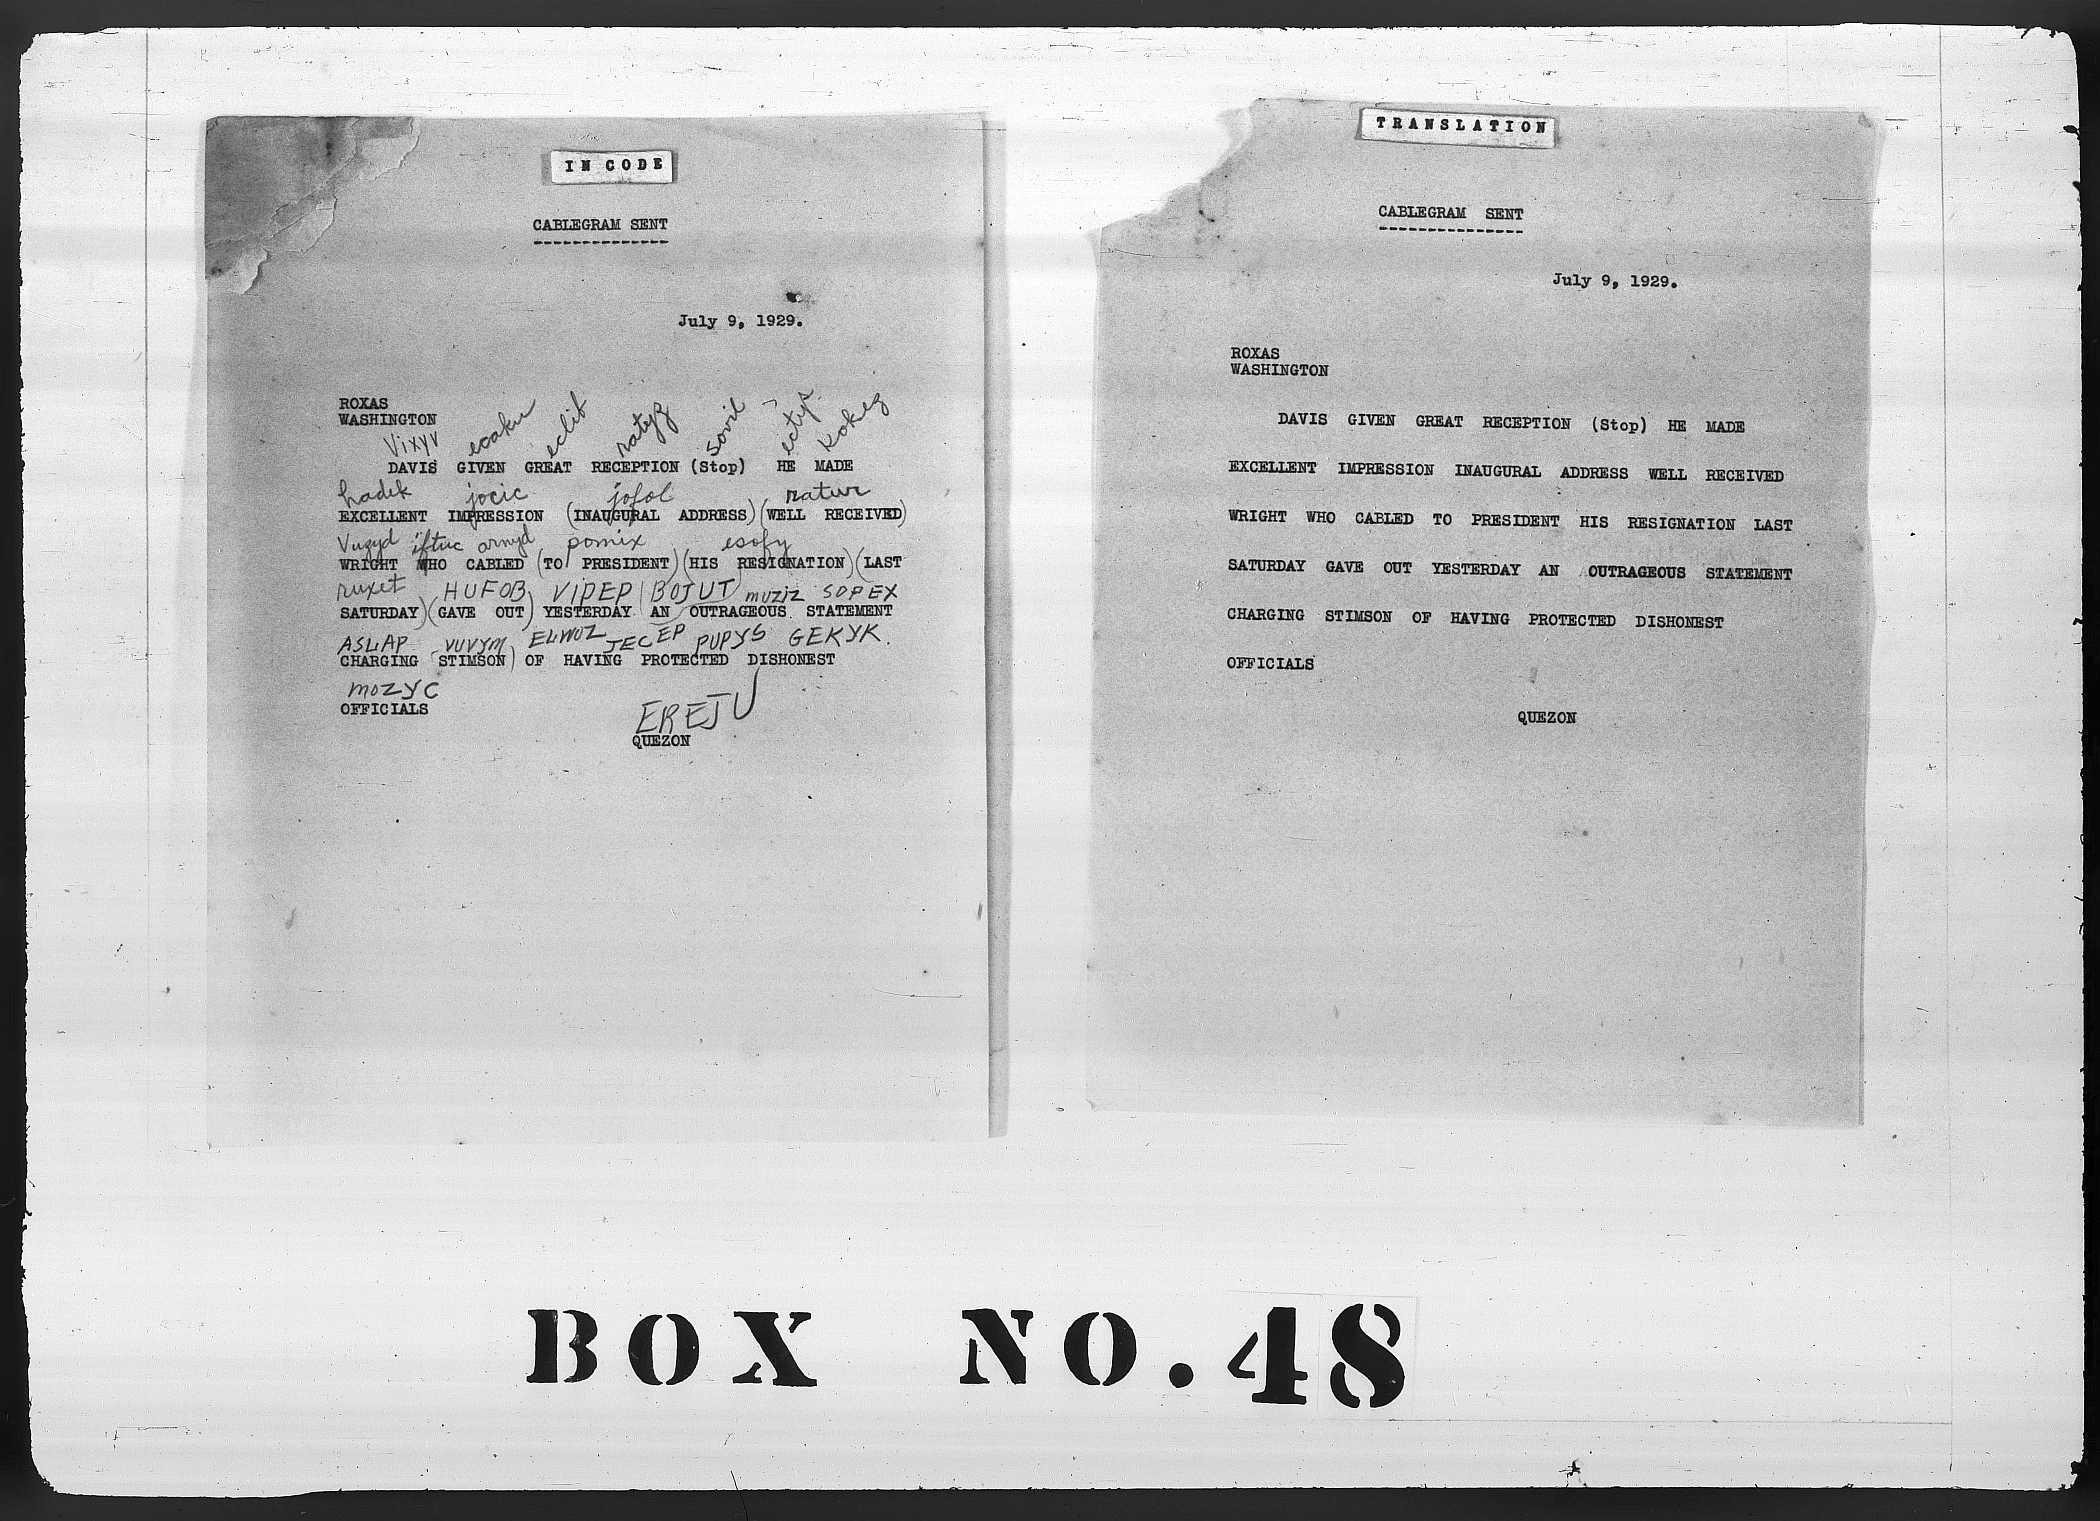 IN CODE
CABLEGRAM SENT
July 9, 1929.
ROXAS
WASHINGTON
Vixyv ecaku eclif ratyz sovil ectyp kokez
DAVIS GIVEN GREAT RECEPTION (Stop) HE MADE
hadek jocic jofol ratur
EXCELLENT IMPRESSION (INAUGURAL ADDRESS) (WELL RECEIVED)
Vuzyd iftuc armyd pomix esofy
WRIGHT WHO CABLED (TO PRESIDENT) (HIS RESIGNATION) (LAST
ruxet HUFOB VIPEP BOJUT MUZIZ SOPEX
SATURDAY) (GAVE OUT) YESTERDAY AN OUTRAGEOUS STATEMENT
ASLAP VUVYM ELWUZ JECEP PUPYS GEKYK.
CHARGING STIMSON) OF HAVING PROTECTED DISHONEST
MOZYC
OFFICIALS
EREJU
QUEZON
TRANSLATION
CABLEGRAM SENT
July 9, 1929.
ROXAS
WASHINGTON
DAVIS GIVEN GREAT RECEPTION (Stop) HE MADE
EXCELLENT IMPRESSION INAUGURAL ADDRESS WELL RECEIVED
WRIGHT WHO CABLED TO PRESIDENT HIS RESIGNATION LAST
SATURDAY GAVE OUT YESTERDAY AN OUTRAGEOUS STATEMENT
CHARGING STIMSON OF HAVING PROTECTED DISHONEST
OFFICIALS
QUEZON
BOX NO. 48